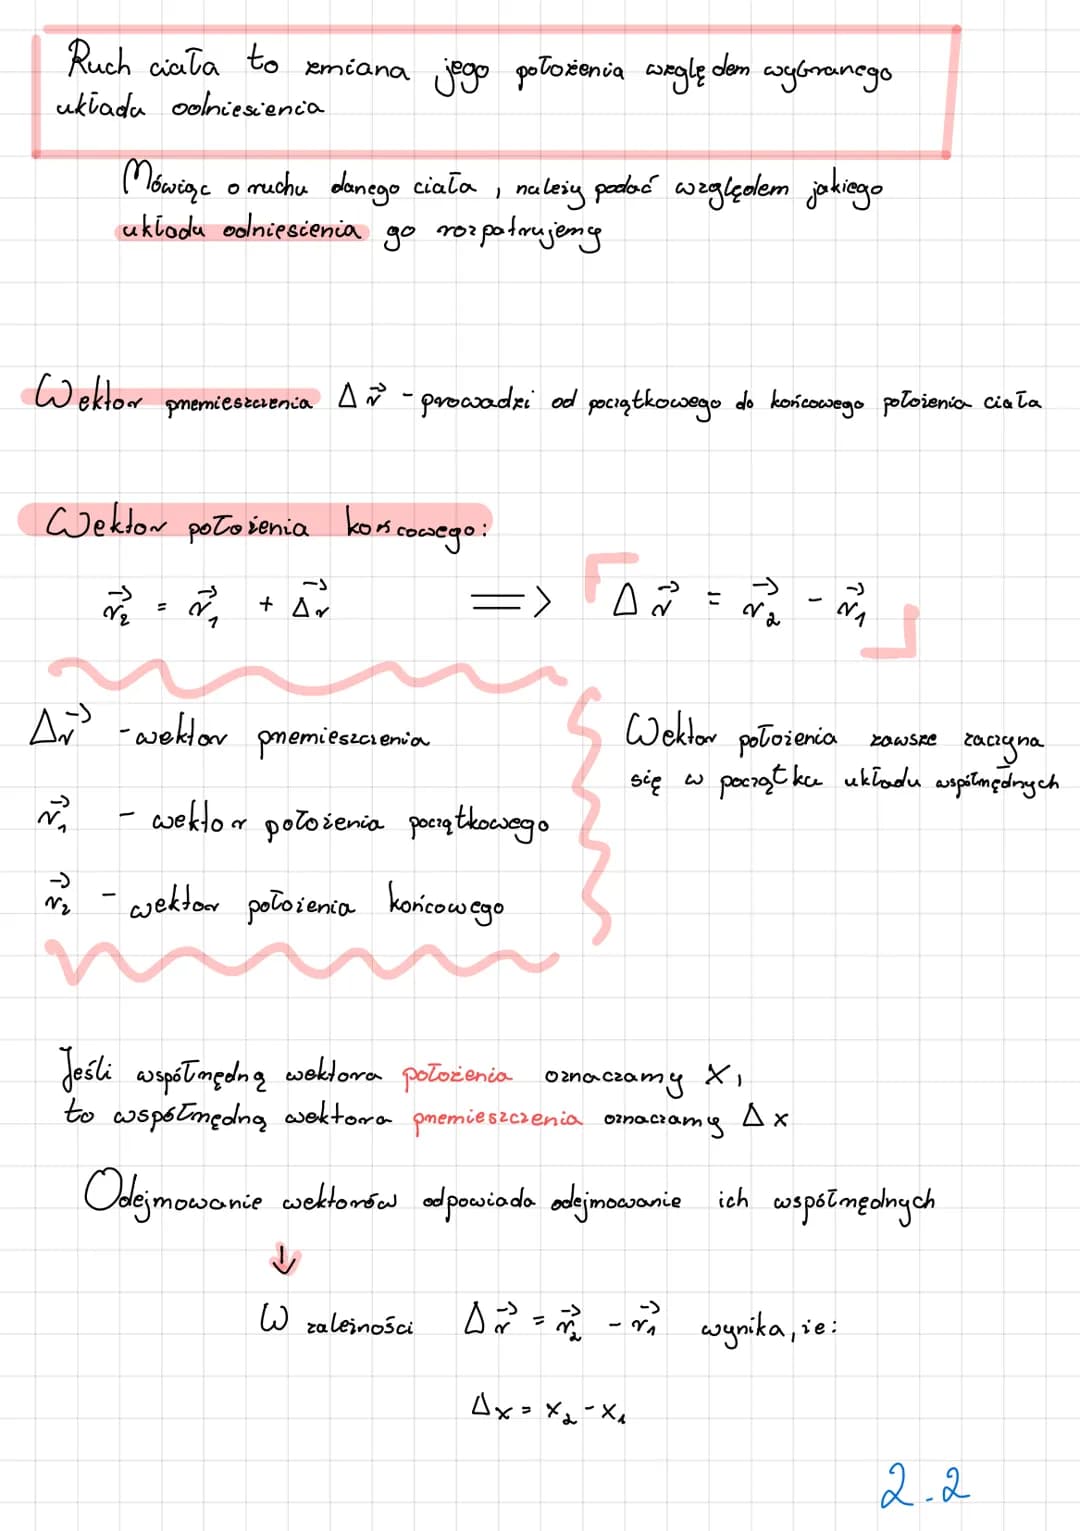 Ruch ciała to zmiana jego położenia względem wybranego
układu odniesienia
Mówiąc o ruchu danego ciała, należy podać względem jakiego
układu odniesienia go rozpatrujemy
Wektor przemieszczenia Δr⃗ - prowadzi od początkowego do końcowego położenia ciała
Wektor położenia końcowego:
r⃗₂ = r⃗₁ + Δr⃗ => Δr⃗ = r⃗₂ - r⃗₁
Δr⃗ - wektor przemieszczenia
r⃗₁ - wektor położenia początkowego
r⃗₂ - wektor położenia końcowego
Wektor położenia zawsze zaczyna
się w początku układu współrzędnych
Jeśli współrzędną wektora położenia oznaczamy x,
to współrzędną wektora przemieszczenia oznaczamy Δx
Odejmowanie wektorów odpowiada odejmowanie ich współrzędnych
↓
W zależności Δr⃗ = r⃗₂ - r⃗₁ wynika, że:
Δx = x₂ - x₁
2.2